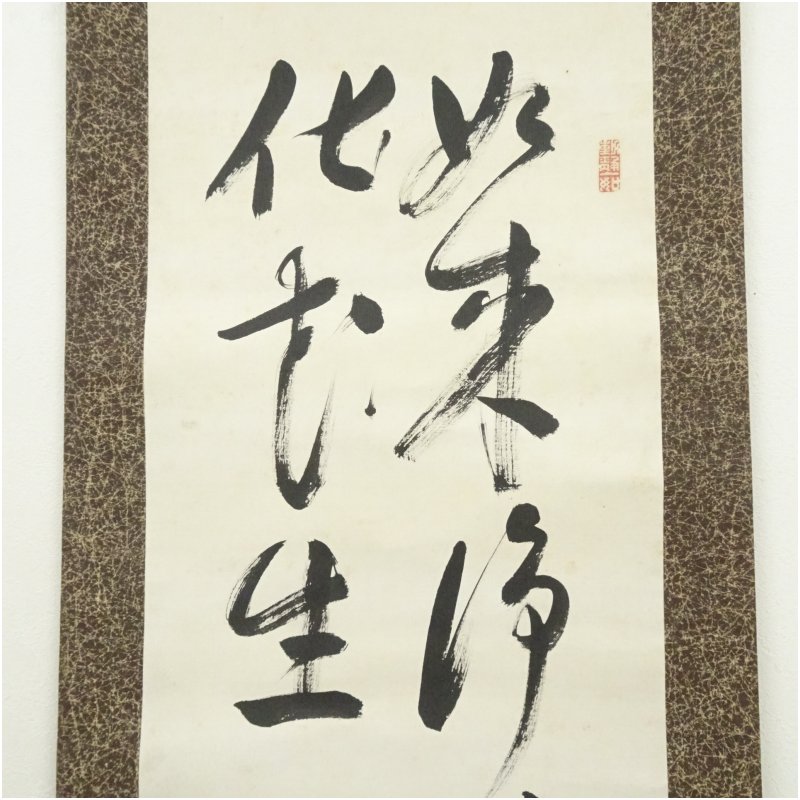 如来浄
化花生